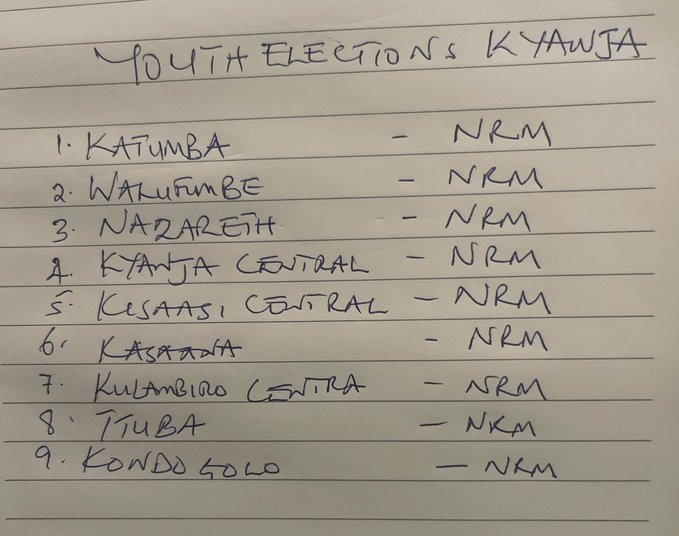 YOUTH ELECTIONS KYANJA
1. KATUMBA - NRM
2. WALUFUMBE - NRM
3. NAZARETH - NRM
4. KYANJA CENTRAL - NRM
5. KISAASI CENTRAL - NRM
6. KASAANA - NRM
7. KULAMBIRO CENTRA - NRM
8. ITUBA - NRM
9. KONDOGOLO - NRM